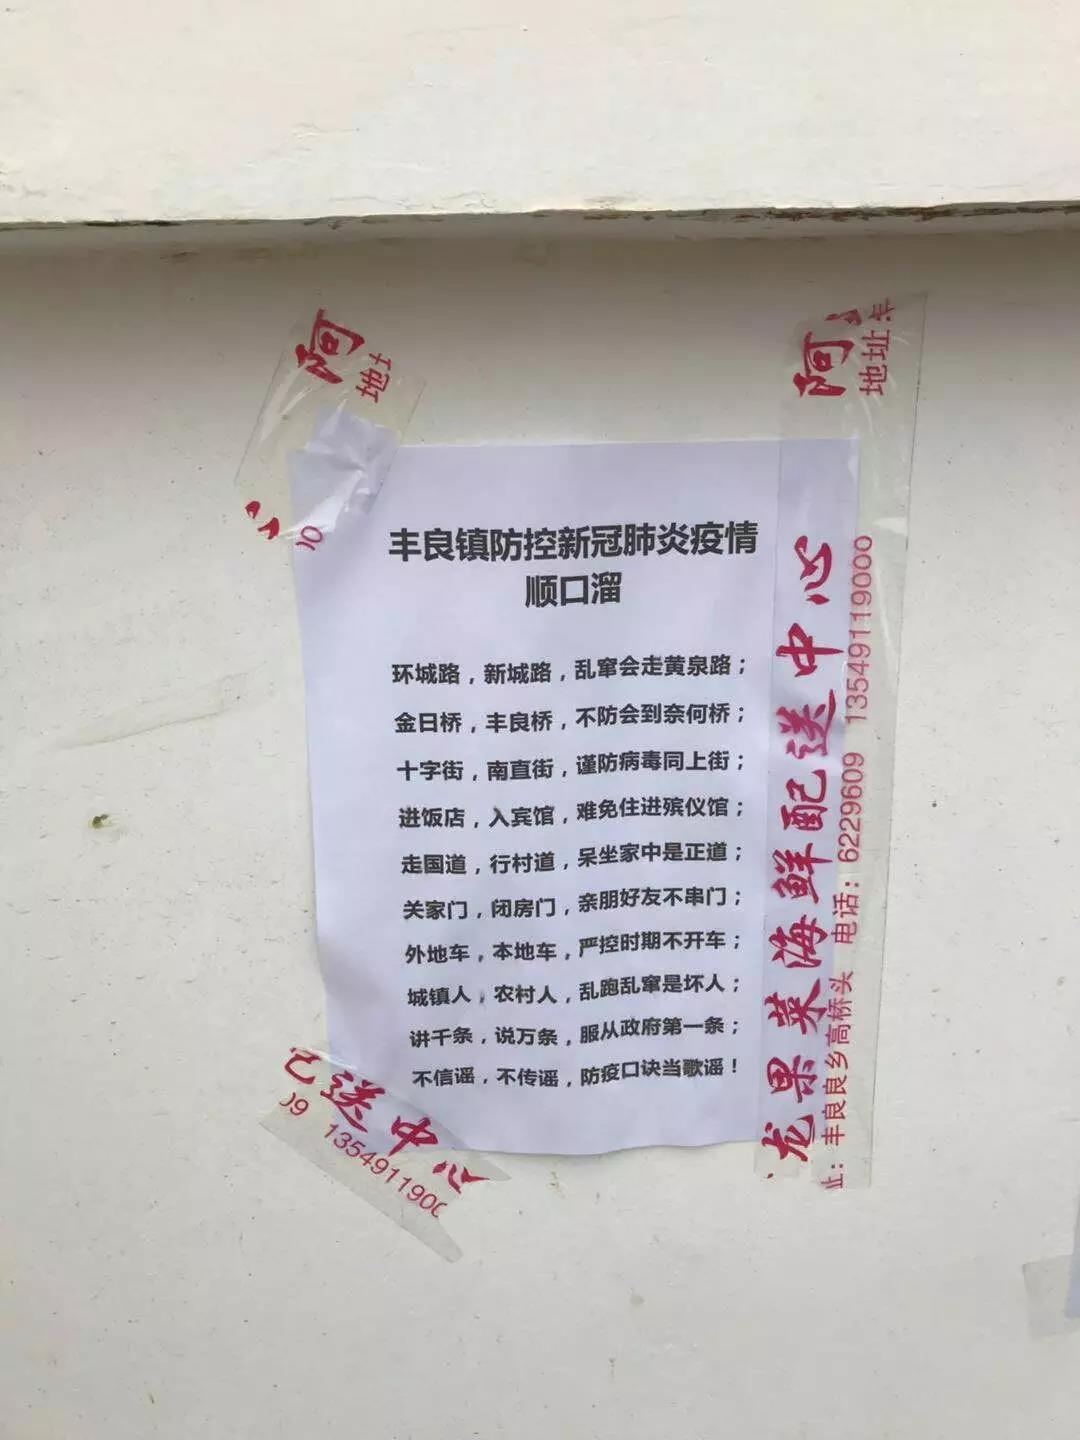 丰良镇防控新冠肺炎疫情
顺口溜
环城路，新城路，乱窜会走黄泉路；
金日桥，丰良桥，不防会到奈何桥；
十字街，南直街，谨防病毒同上街；
进饭店，入宾馆，难免住进殡仪馆；
走国道，行村道，呆坐家中是正道；
关家门，闭房门，亲朋好友不串门；
外地车，本地车，严控时期不开车；
城镇人，农村人，乱跑乱窜是坏人；
讲千条，说万条，服从政府第一条；
不信谣，不传谣，防疫口诀当歌谣！
阿
阿
地址：丰
龙果菜海鲜配送中心
址：丰良良乡高桥头 电话：6229609 13549119000
送中心
09 1354911900